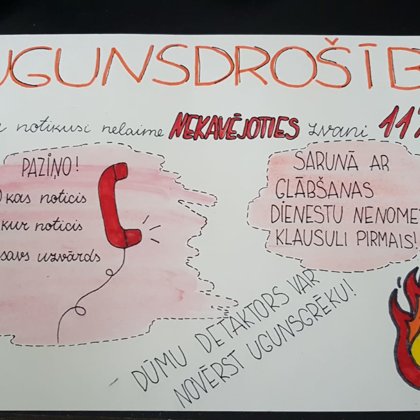 UGUNSDROŠĪB
notikusi nelaime NEKAVĒJOTIES zvani 112
PAZIŅO!
kas noticis
kur noticis
savs uzvārds
SARUNĀ AR
GLĀBŠANAS
DIENESTU NENOMET
KLAUSULI PIRMAIS!
DŪMU DETAKTORS VAR
NOVĒRST UGUNSGRĒKU!